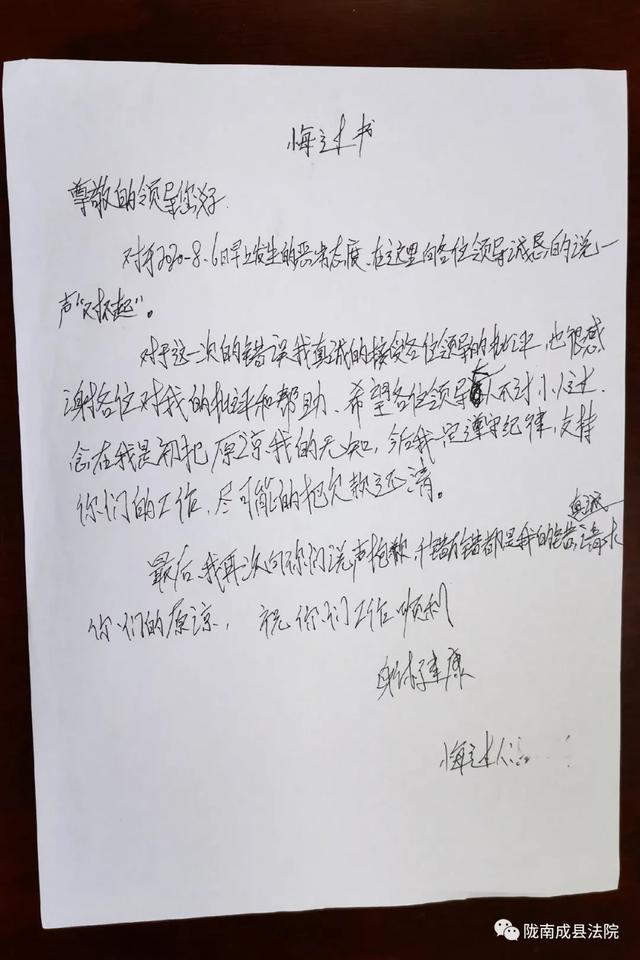 悔过书
尊敬的领导您好
对于2020-8.6日早上发生的恶劣态度、在这里向各位领导诚恳的说一
声“对不起”。
对于这一次的错误我真诚的接受各位领导的批评,也很感
谢各位对我的批评和帮助、希望各位领导大人不计小人过.
念在我是初犯原谅我的无知,今后我一定遵守纪律,支持
你们的工作,尽可能的把欠款还清。
最后、我再次向你们说声抱歉,千错万错都是我的错,真诚请求
你们的原谅, 祝你们工作顺利
身体健康
悔过人:
陇南成县法院